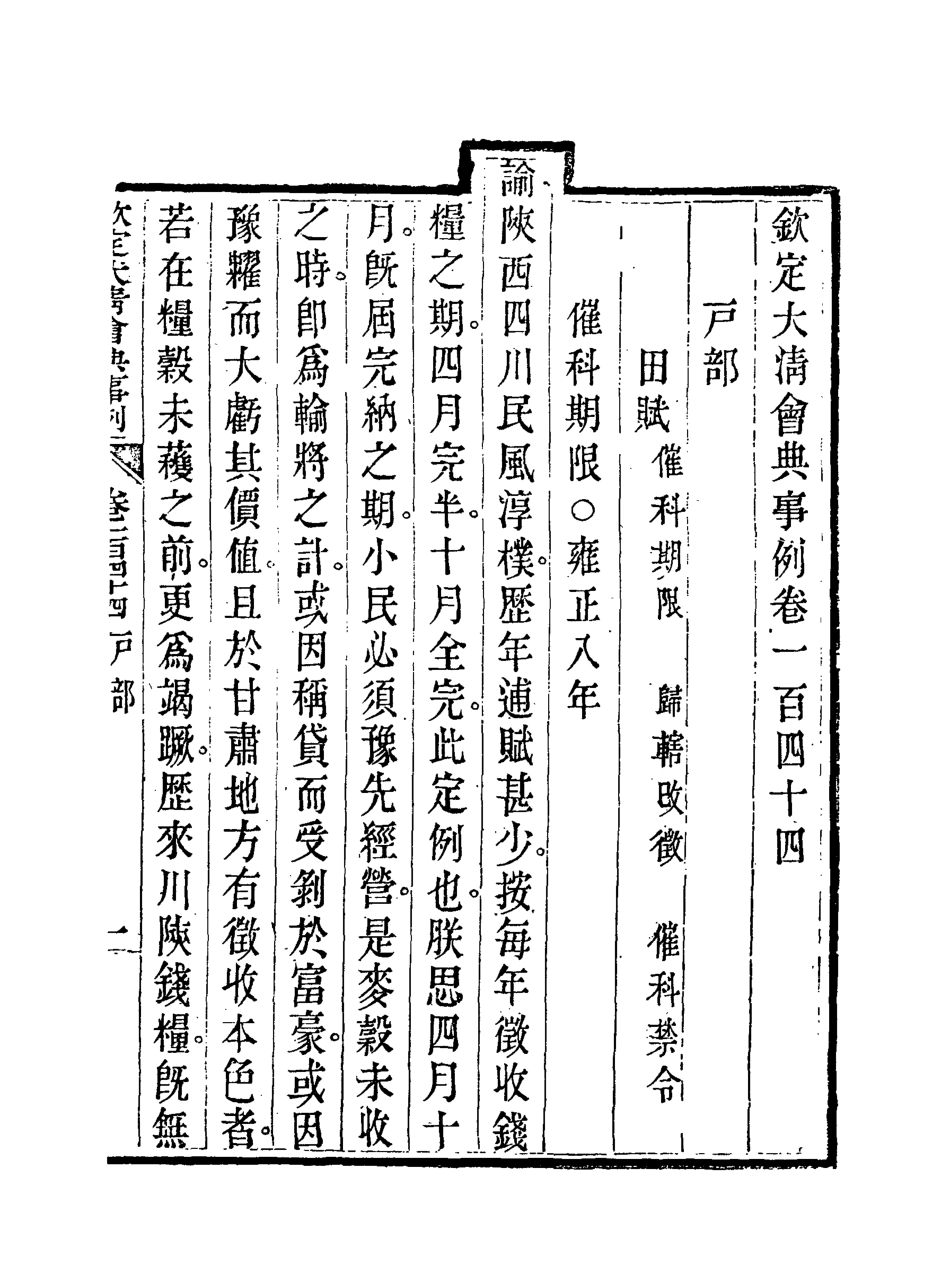 欽定大清會典事例卷一百四十四
戶部
田賦 催科期限 歸轄改徵 催科禁令
催科期限○雍正八年
諭陝西四川民風淳樸。歷年逋賦甚少。按每年徵收錢
糧之期。四月完半。十月全完。此定例也。朕思四月十
月。旣屆完納之期。小民必須豫先經營。是麥穀未收
之時。卽爲輸將之計。或因稱貸而受剝於富豪。或因
豫糶而大虧其價值。且於甘肅地方有徵收本色者。
若在糧穀未穫之前。更爲竭蹶。歷來川陝錢糧。旣無
欽定大清會典事例 卷一百四十四 戶部 一